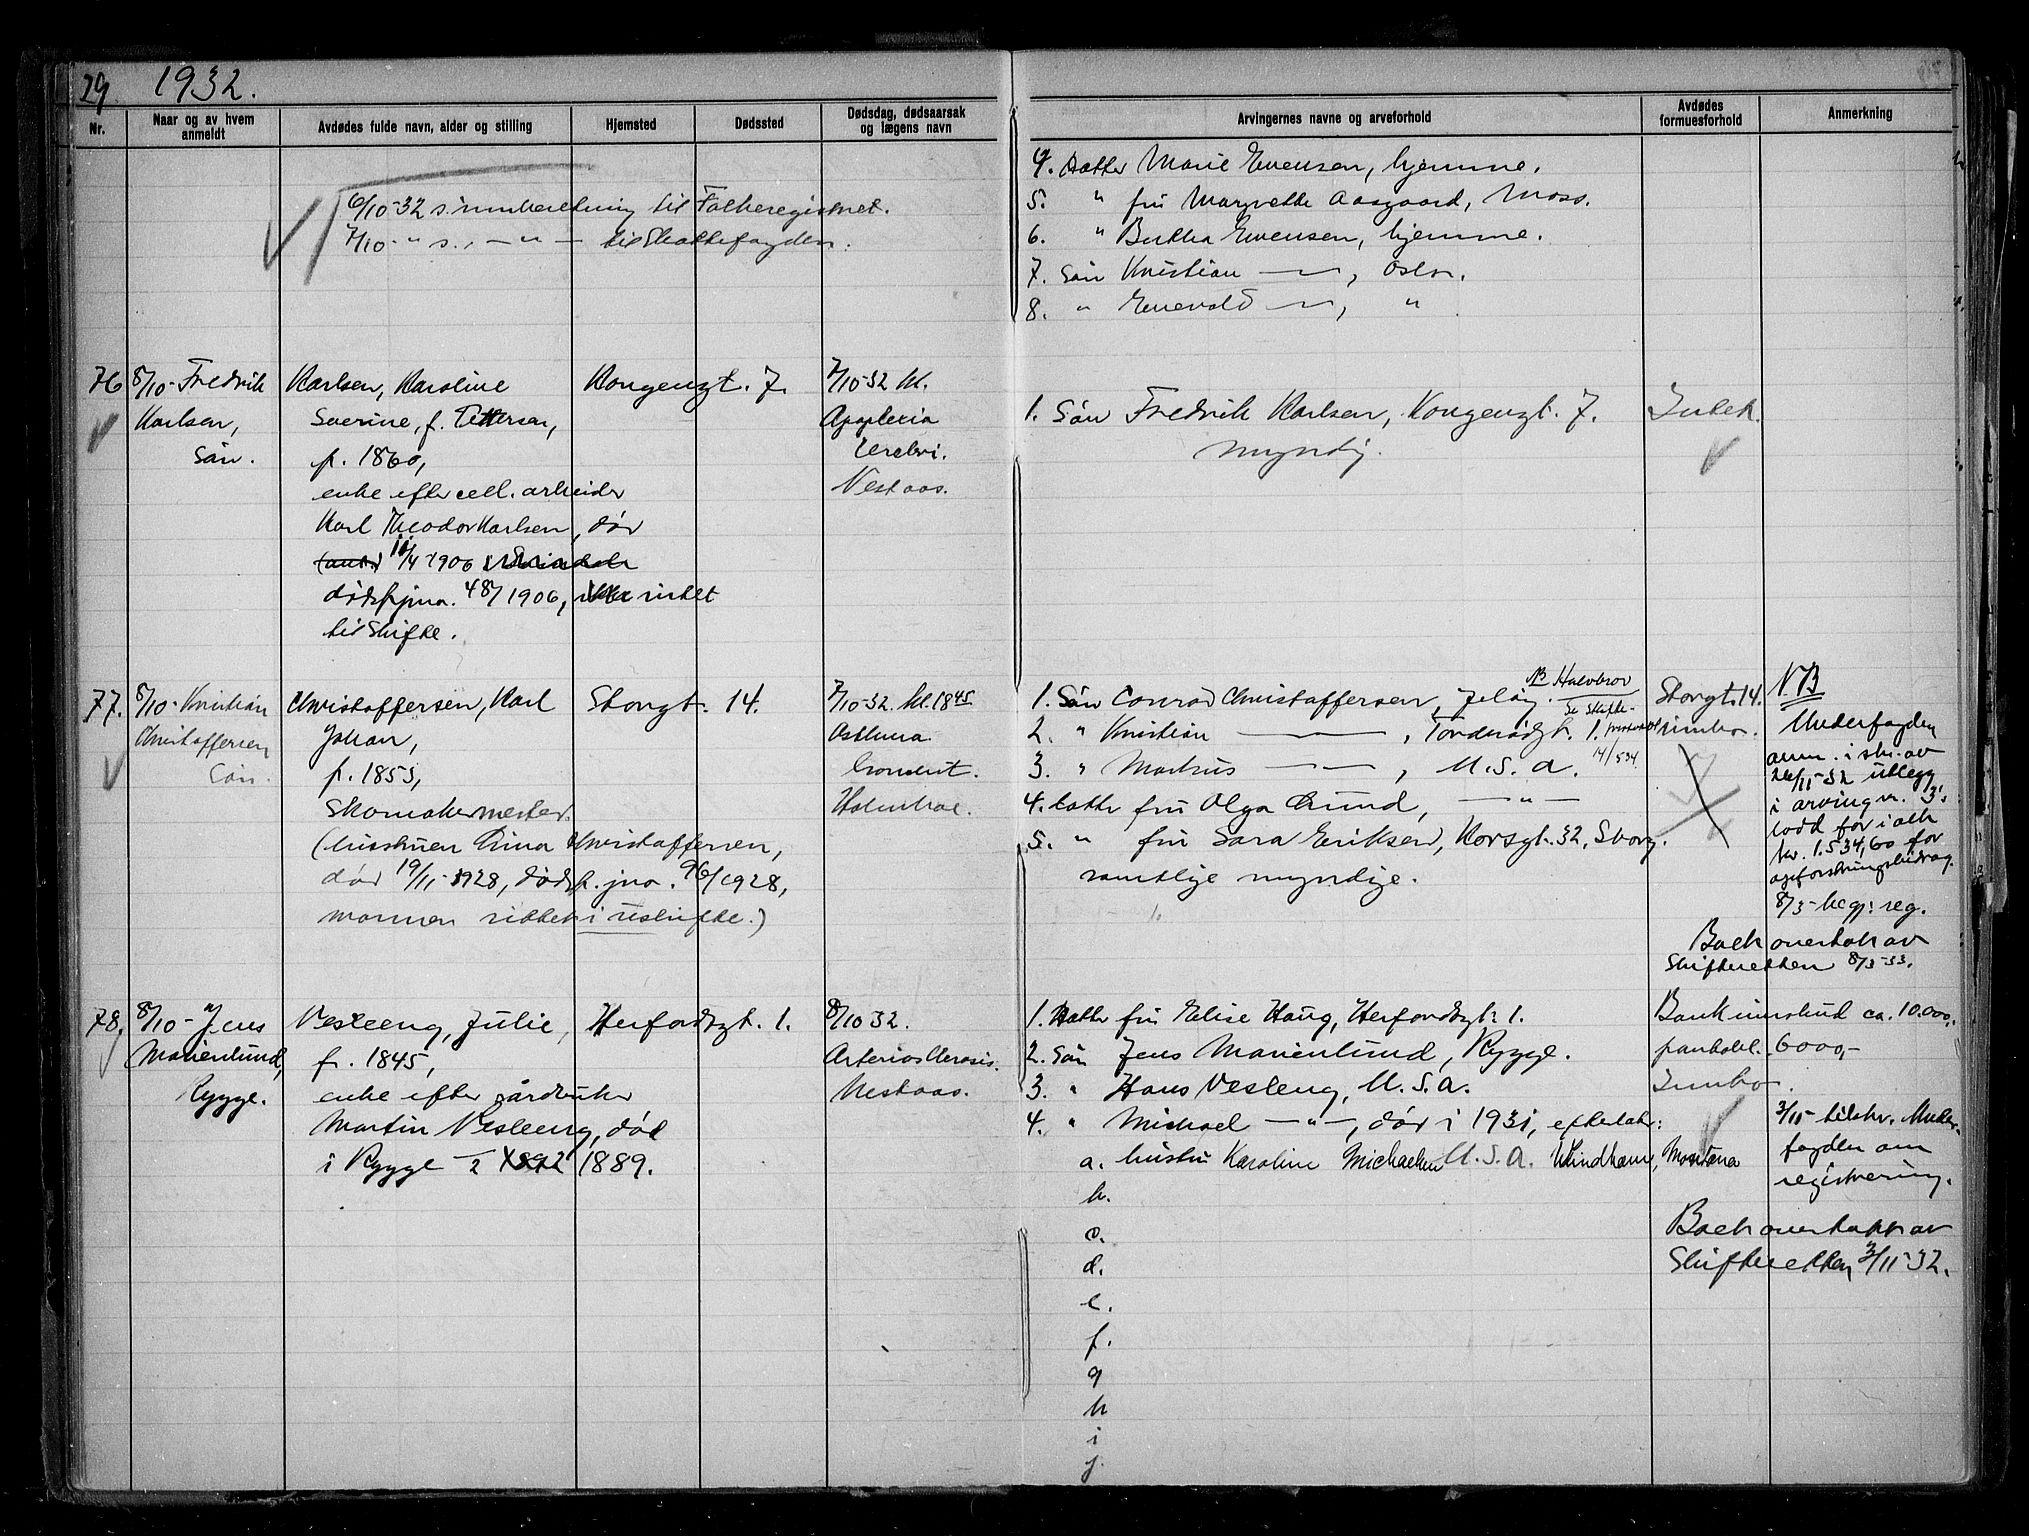 29. 1932.
Nr.
Naar og av hvem anmeldt
Avdødes fulde navn, alder og stilling
Hjemsted
Dødssted
Dødsdag, dødsaarsak og lægens navn
Arvingernes navne og arveforhold
Avdødes formuesforhold
Anmerkning
6/10-32 s. innberetning til Folkeregistret.
7/10- " s., — " — til Skattefogden.
4. Datter Marie Evensen, hjemme.
5. " fru Margrethe Aasgaard, Moss.
6. " Bertha Evensen, hjemme.
7. Søn Kristian — " —, Oslo.
8. " Enevald — " —, "
76
8/10- Fredrik
Karlsen,
Søn.
Karlsen, Karoline
Severine, f. Pettersen,
f. 1860,
enke efter cell. arbeider
Karl Theodor Karlsen, død
11/4 1906
dødsfjna. 48/1906, ikke anmeldt
til Skifte.
Kongensgt. 7.
7/10-32 kl.
Apoplexia
cerebri.
Nestaas.
1. Søn Fredrik Karlsen, Kongensgt. 7.
myndig.
Intet.
77.
8/10- Kristian
Christoffersen
Søn.
Christoffersen, Karl
Johan,
f. 1853,
Skomakermester.
(hustruen Lina Christoffersen,
død 19/11-1928, dødsf. jna. 96/1928,
mannen sitter i uskifte.)
Storgt. 14.
7/10-32. kl. 18 45
Asthma
bronch.
Holmboe.
NB Halvbror
1. Søn Conrad Christoffersen, Jeløy.
Se skifteprotokol
14/534
2. " Kristian — " —, Tonderødgt. 1.
3. " Markus — " —, U.S.A.
4. Datter fru Olga Lund, — " —
5. " fru Sara Eriksen, Korsgt. 32, Sborg.
samtlige myndige.
Storgt. 14.
innbo.
NB
Underfogden
anm. i skr. av
26/11-32 utlegg
i arving nr. 3's
lodd for ialt
kr. 1.534,60 for
opfostringsbidrag.
8/3- begj. reg.
Boet overtatt av
Skifteretten 8/3-33.
78.
8/10- Jens
Marienlund,
Rygge.
Vesleeng, Julie,
f. 1845,
enke efter gårdbruker
Martin Vesleeng, død
i Rygge — 2 1892 1889.
Herfordsgt. 1.
8/10 32.
Arteriosclerosis.
Nestaas.
1. Datter fru Elise Haug, Herfordsgt. 1.
2. Søn Jens Marienlund, Rygge.
3. " Hans Vesleng, U.S.A.
4. " Michael — " —, død i 1931, efterlatt:
a. hustru Karoline Michaelsen U.S.A. Windham, Montana
b.
c.
d.
e.
f.
g
h
i
j.
Bankinnskud ca. 10.000,-
pantobl. 6000,-
Innbo.
3/11- tilskr. Underfogden
om
registrering.
Boet overtatt av
Skifteretten 3/11-32.